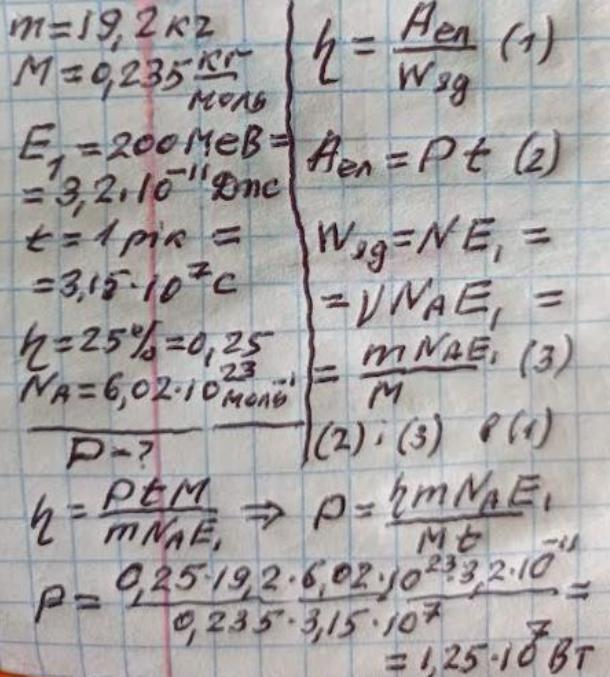 m=19,2 кг
M=0,235 кг/моль
E₁=200 МеВ=
=3,2·10⁻¹¹ Дж
t=1 рік =
=3,15·10⁷ с
η=25%=0,25
N_A=6,02·10²³ моль⁻¹
P-?
η = Aел/Wяд (1)
Aел=Pt (2)
Wяд=NE₁ =
=νN_AE₁ =
= mN_AE₁/M (3)
(2) і (3) в (1)
η = PtM/mN_AE₁ ⇒ P = ηmN_AE₁/Mt
P = 0,25·19,2·6,02·10²³·3,2·10⁻¹¹/0,235·3,15·10⁷ =
= 1,25·10⁷ Вт